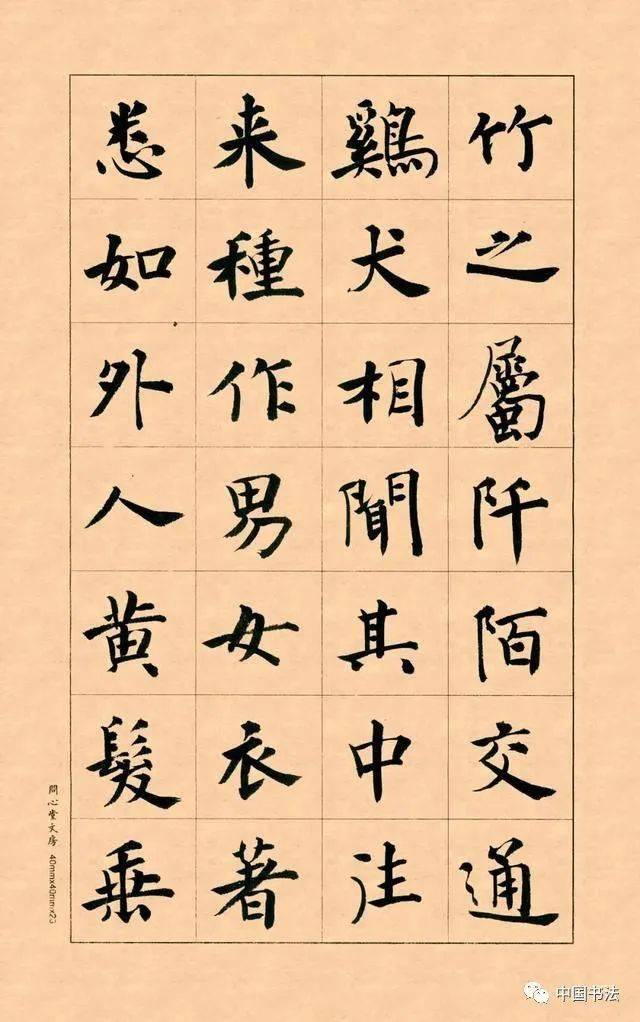 竹之屬阡陌交通
鷄犬相聞其中往
来種作男女衣著
悉如外人黄髮垂
問心堂文房 40mmx40mmx28
中国书法